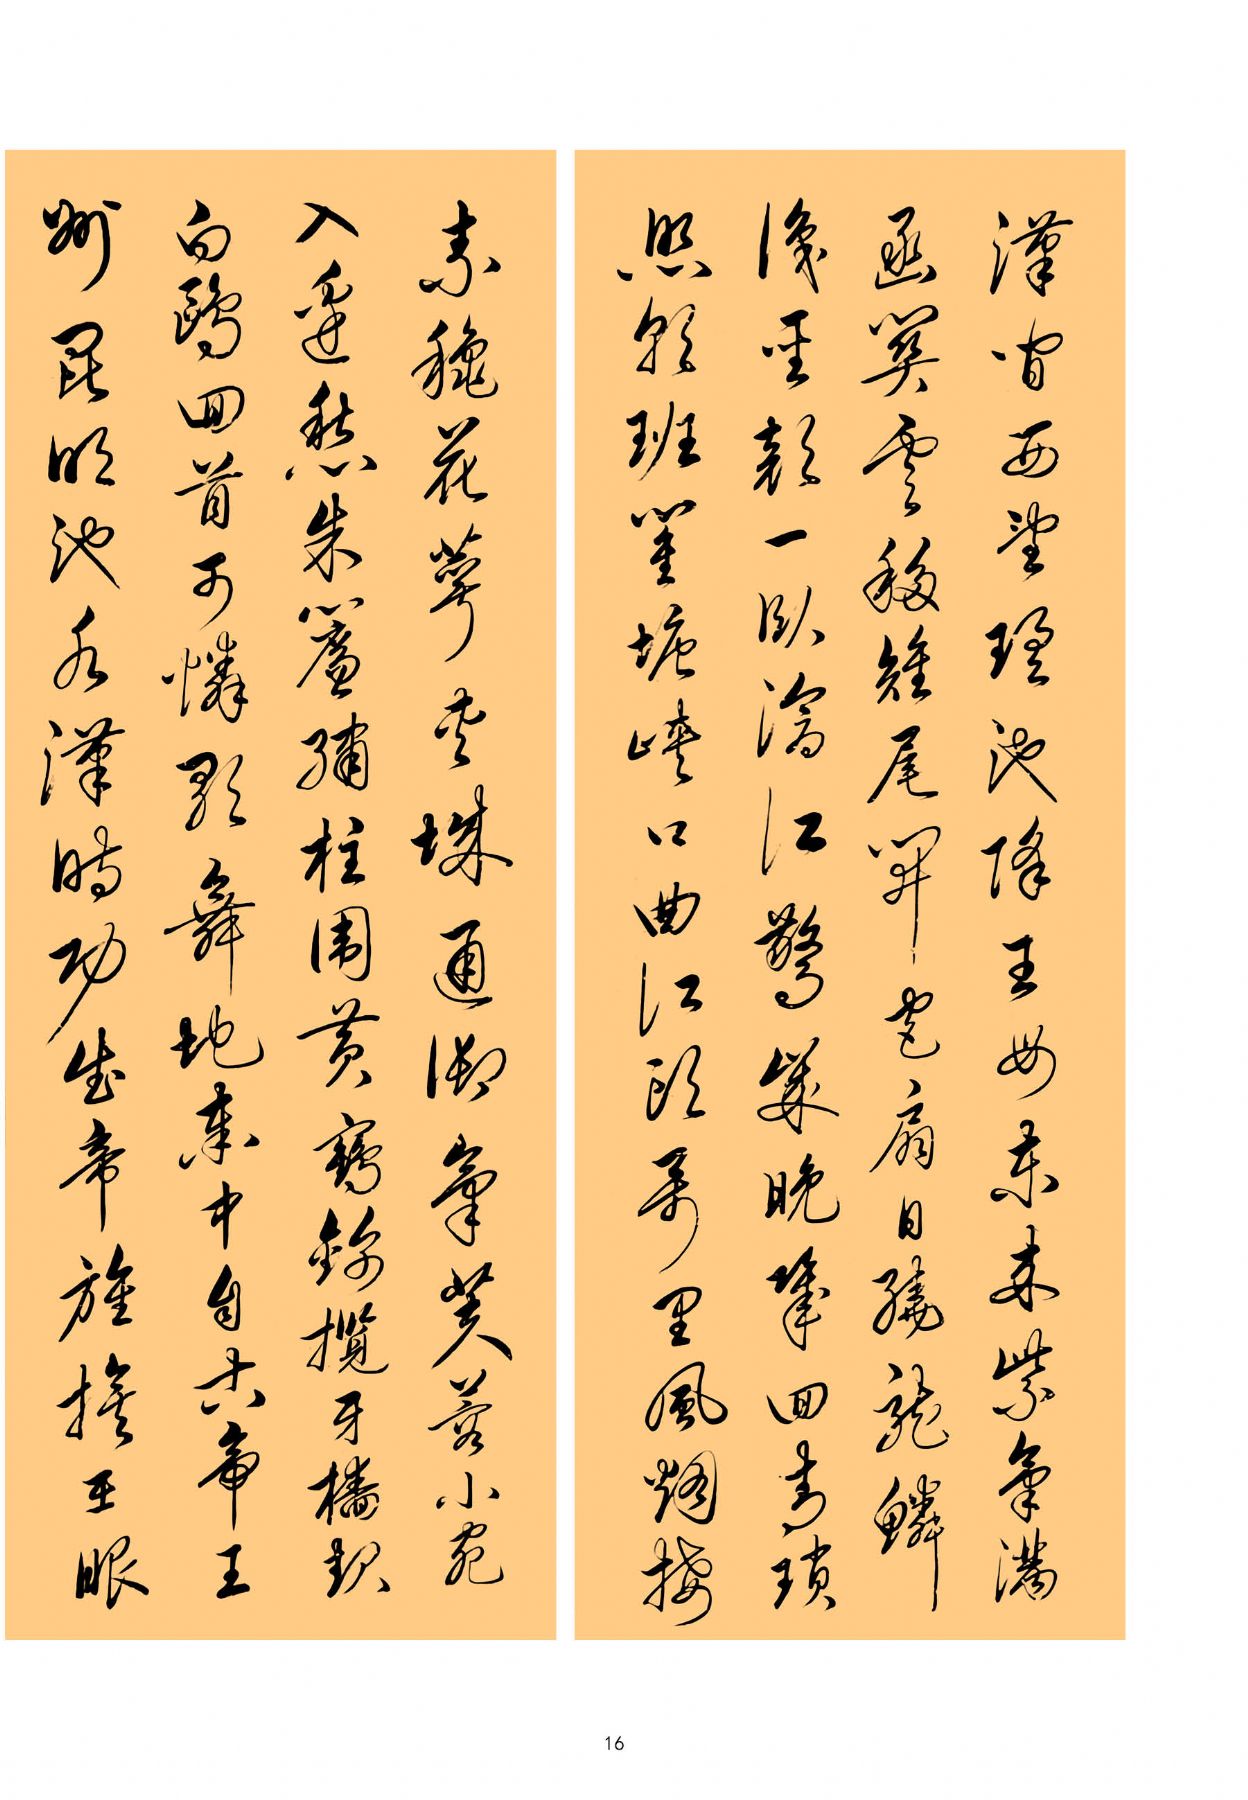 漢間西望瑤池降王母東來紫氣滿
函關雲移雉尾開宮扇日繞龍鱗
識聖顏一臥滄江驚歲晚幾回青瑣
點朝班瞿塘峽口曲江頭萬里風煙接
素秋花萼夾城通御氣芙蓉小苑
入邊愁朱簾繡柱圍黃鶴錦纜牙檣起
白鷗回首可憐歌舞地秦中自古帝王
州昆明池水漢時功武帝旌旗在眼
16